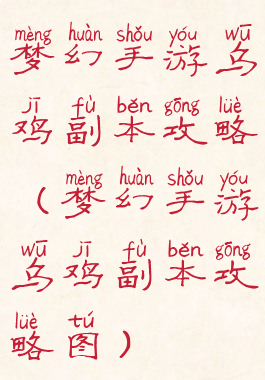 mèng huàn shǒu yóu wū
梦幻手游乌
jī fù běn gōng lüè
鸡副本攻略
mèng huàn shǒu yóu
（梦幻手游
wū jī fù běn gōng
乌鸡副本攻
lüè tú
略图）